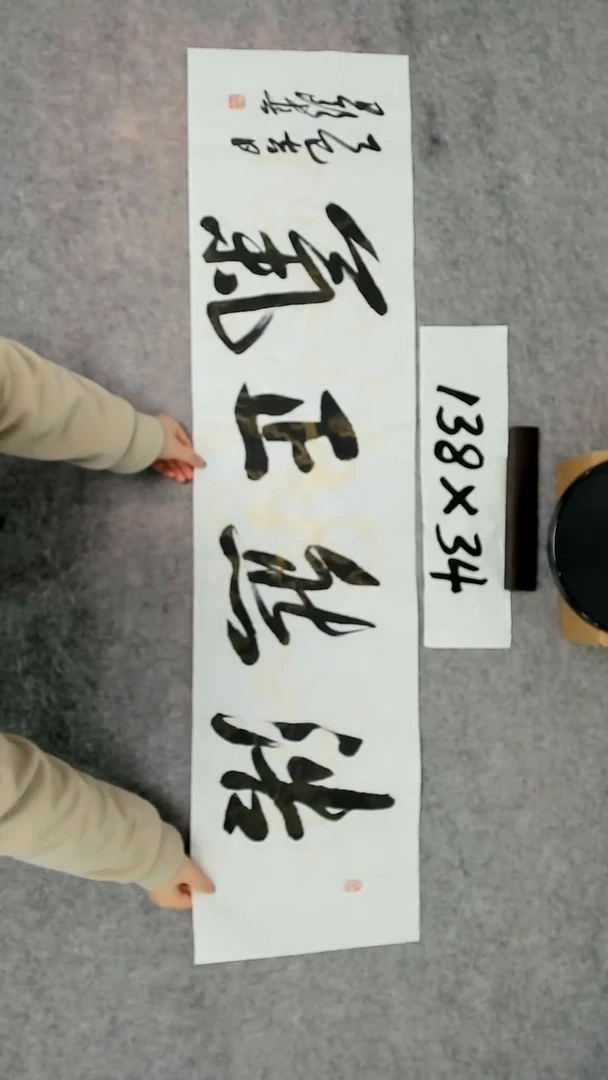 浩然正氣
吉日
138×34